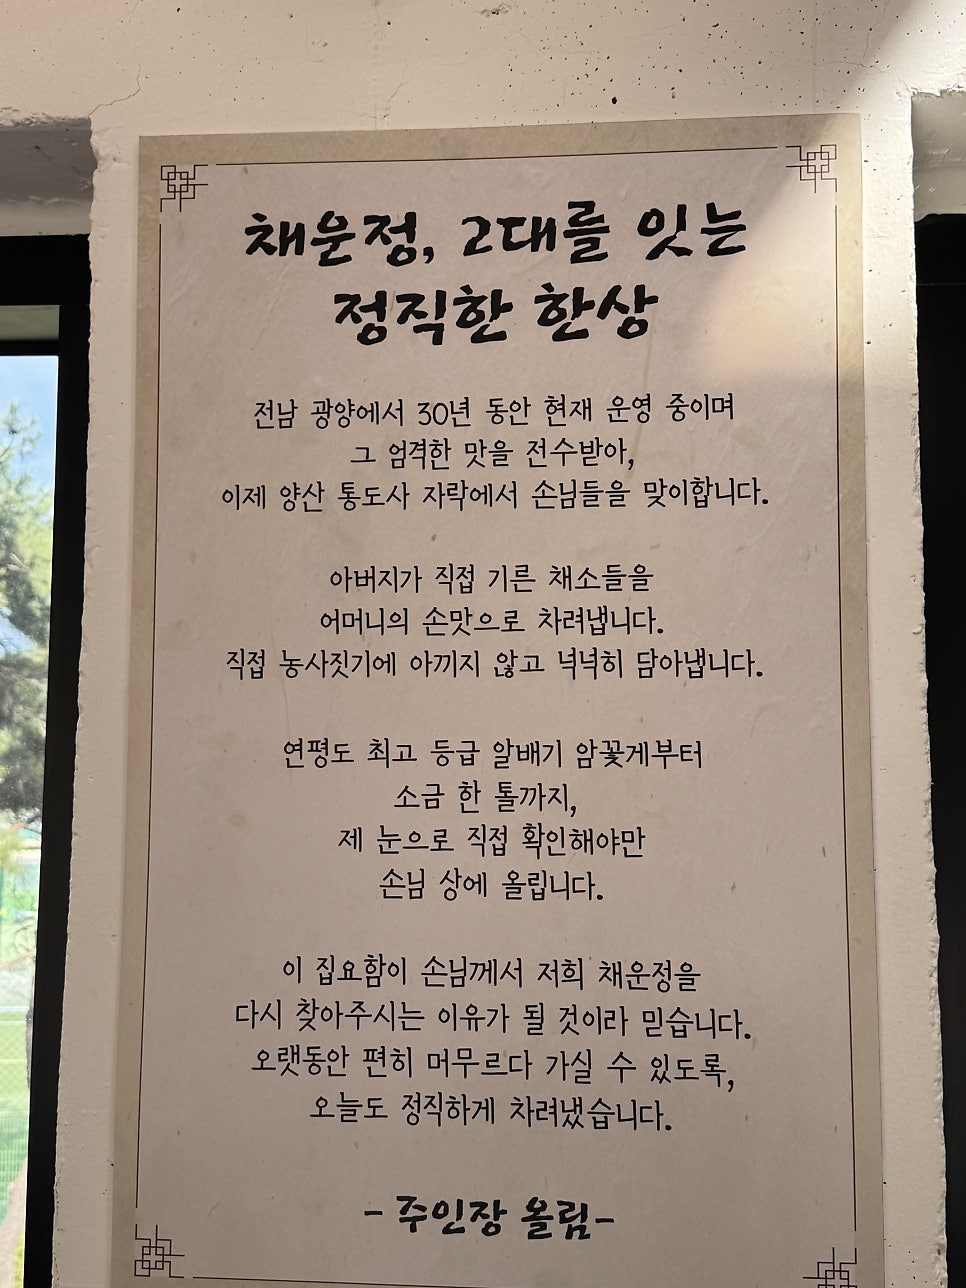 채운정, 2대를 잇는
정직한 한상
전남 광양에서 30년 동안 현재 운영 중이며
그 엄격한 맛을 전수받아,
이제 양산 통도사 자락에서 손님들을 맞이합니다.
아버지가 직접 기른 채소들을
어머니의 손맛으로 차려냅니다.
직접 농사짓기에 아끼지 않고 넉넉히 담아냅니다.
연평도 최고 등급 알배기 암꽃게부터
소금 한 톨까지,
제 눈으로 직접 확인해야만
손님 상에 올립니다.
이 집요함이 손님께서 저희 채운정을
다시 찾아주시는 이유가 될 것이라 믿습니다.
오랫동안 편히 머무르다 가실 수 있도록,
오늘도 정직하게 차려냈습니다.
- 주인장 올림-